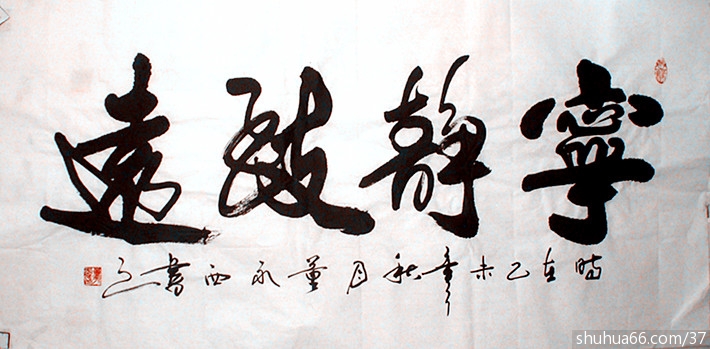 寧靜致遠
時在乙未季秋月董永西書
shuhua66.com/37